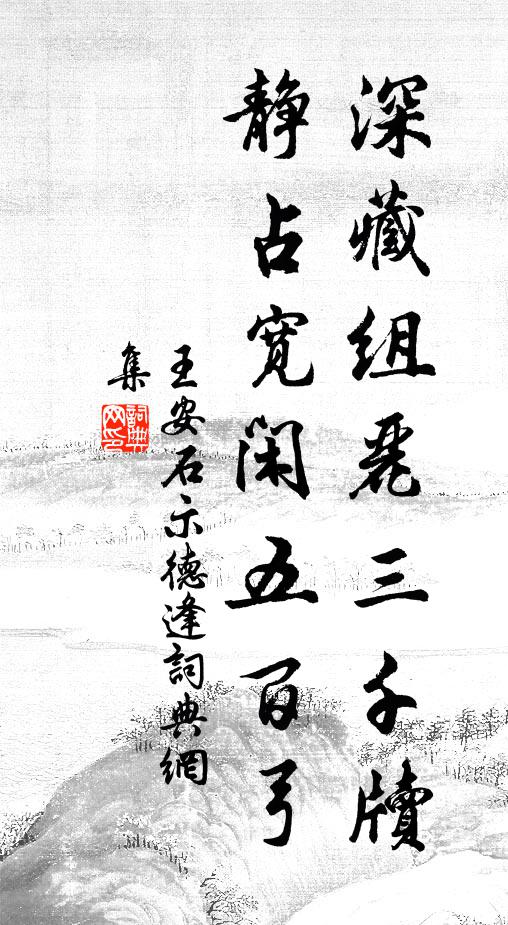 深藏組麗三千牘
静占寬閑五百弓
王安石示德逢詞典網
集
詞典网印